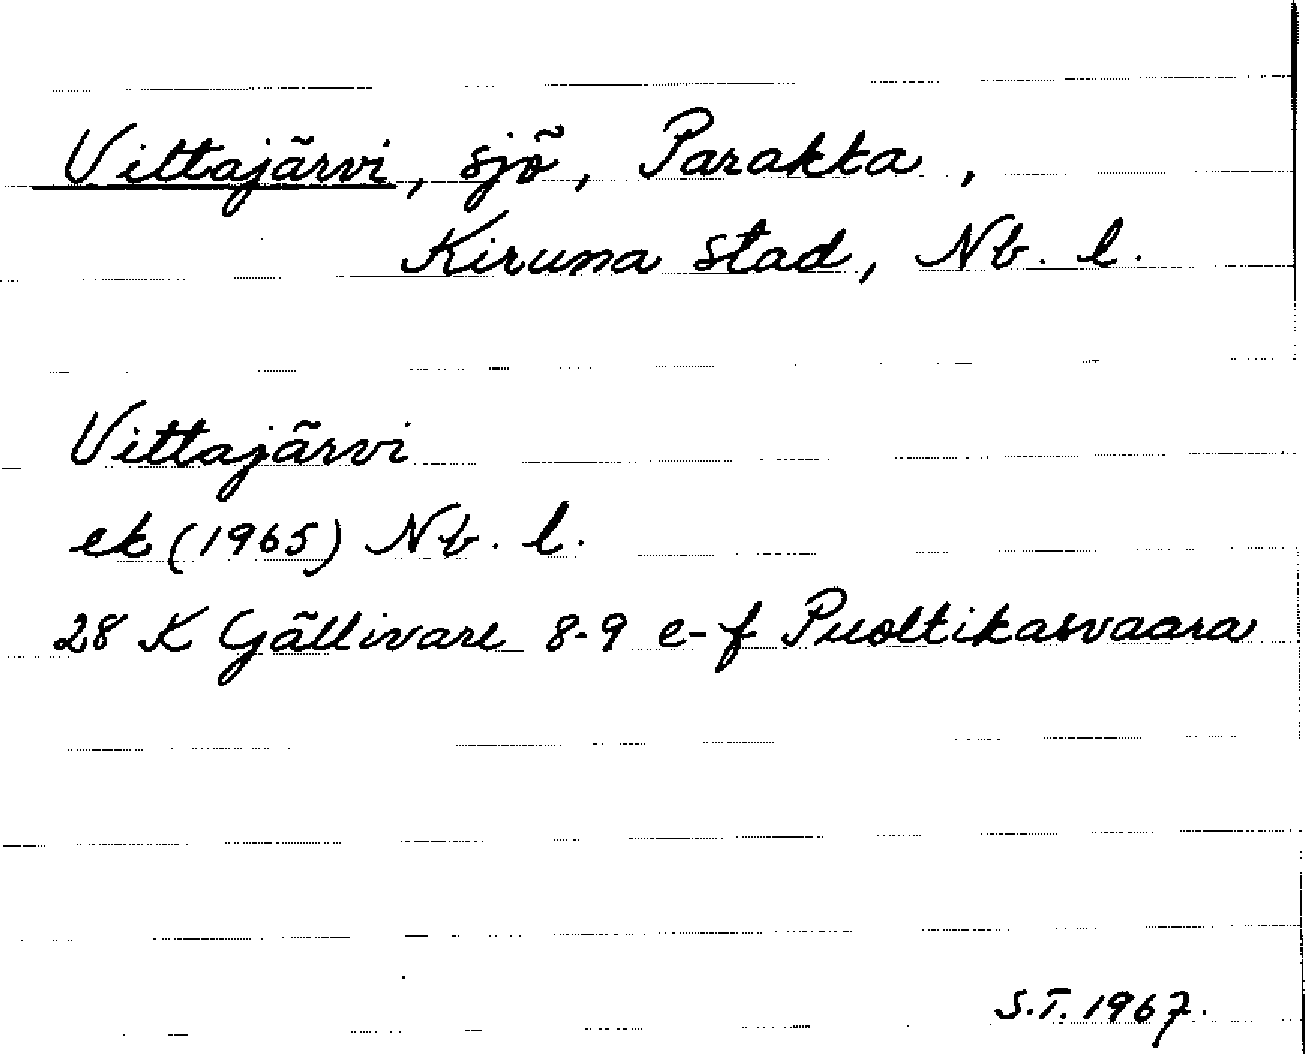 Vittajärvi, sjö, Parakka,
Kiruna stad, Nb. l.
Vittajärvi
ek (1965) Nb. l.
28 K Gällivare 8-9 e-f Puoltikasvaara
S.T. 1967.